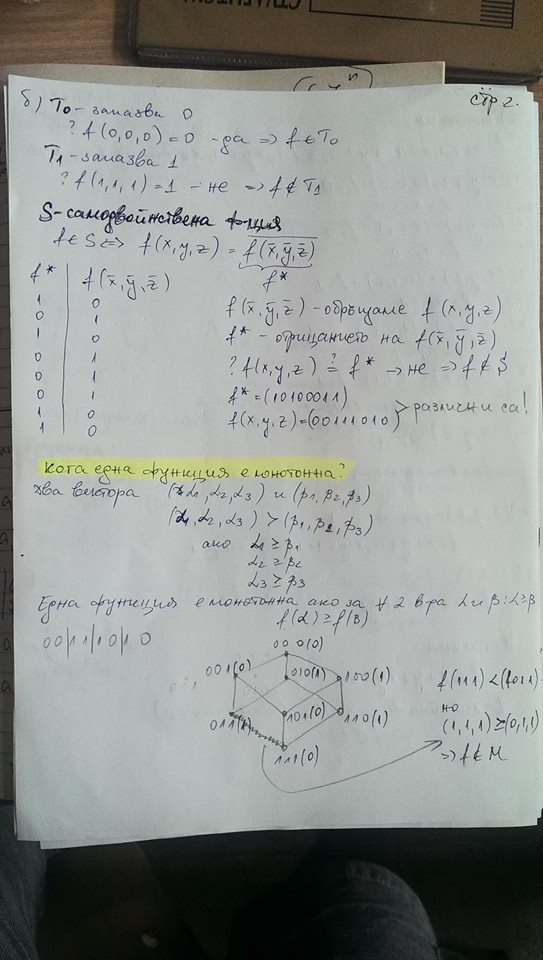 стр 2.
б) T₀ - запазва 0
? f(0,0,0) = 0 - да => f ∈ T₀
T₁ - запазва 1
? f(1,1,1) = 1 - не => f ∉ T₁
S - самодвойнствена ф-ция
f ∈ S <=> f(x,y,z) = \overline{f(x̄,ȳ,z̄)}
f*
f* | f(x̄,ȳ,z̄)
1 | 0
0 | 1
1 | 0
0 | 1
0 | 1
0 | 1
1 | 0
1 | 0
f(x̄,ȳ,z̄) - обръщаме f(x,y,z)
f* - отрицанието на f(x̄,ȳ,z̄)
? f(x,y,z) ≟ f* → не => f ∉ S
f* = (10100011)
f(x,y,z) = (00111010) > различни са!
Кога една функция е монотонна?
два вектора (α₁,α₂,α₃) и (β₁,β₂,β₃)
(α₁,α₂,α₃) > (β₁,β₂,β₃)
ако α₁ ≥ β₁
α₂ ≥ β₂
α₃ ≥ β₃
Една функция е монотонна ако за ∀ 2 в-ра α и β: α≥β
f(α) ≥ f(β)
00|11|10|10
000(0)
001(0) 010(1) 100(1)
011(1) 101(0) 110(1)
111(0)
f(111) < f(011)
но
(1,1,1) ≥ (0,1,1)
=> f ∉ M